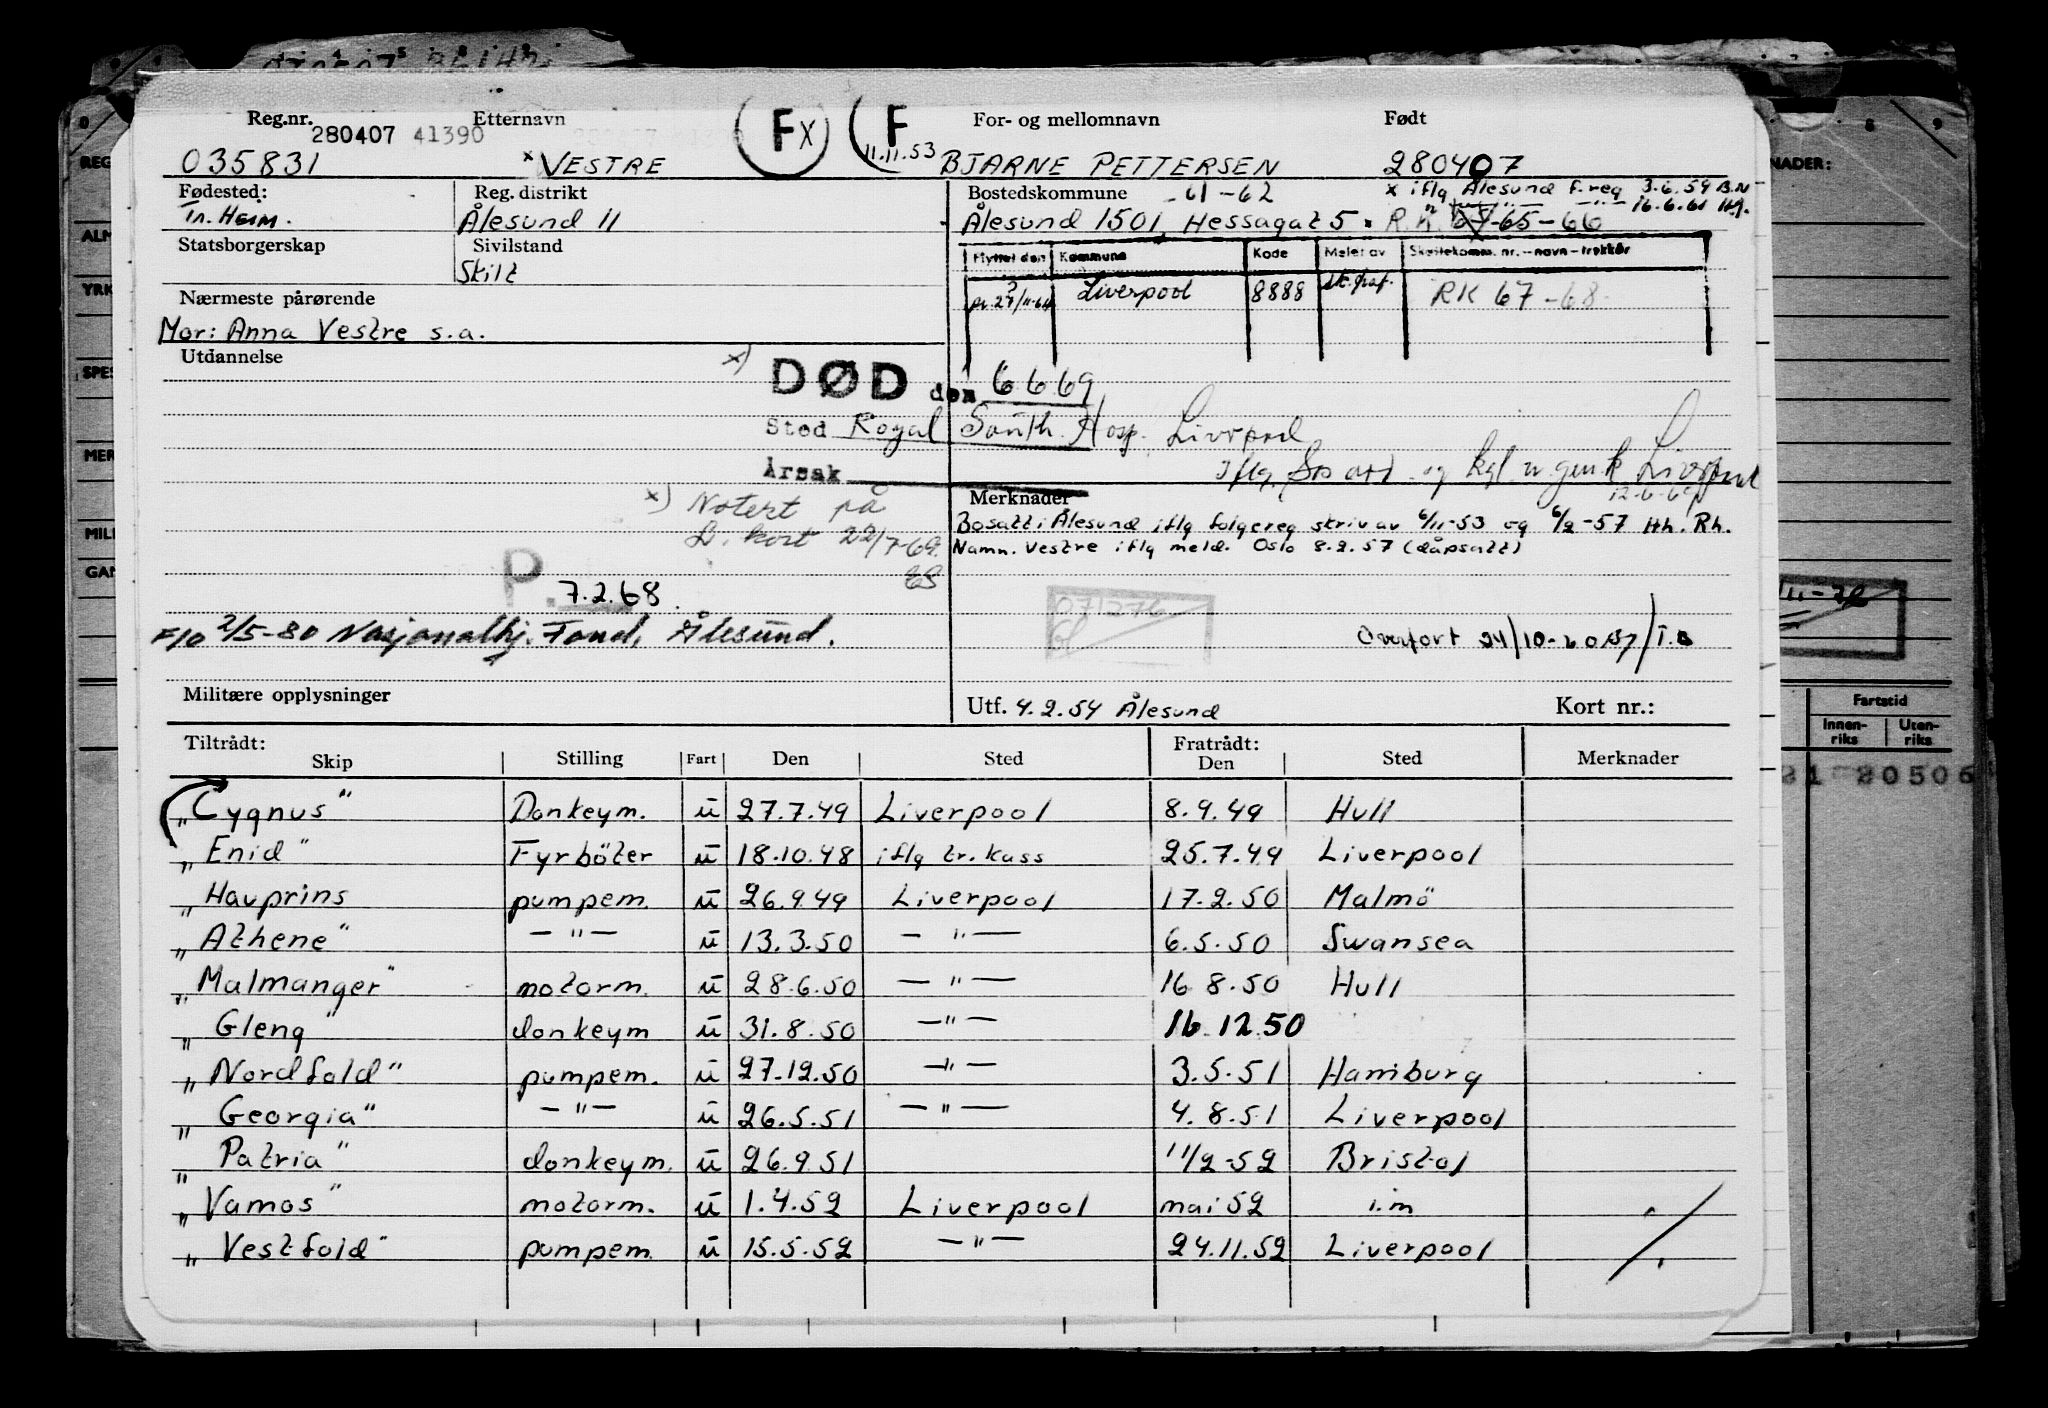 Reg.nr. 280407 41390 Etternavn Fx F For- og mellomnavn Født
035831 x VESTRE 11.11.53 BJARNE PETTERSEN 280407
Fødested: Reg. distrikt Bostedskommune -61-62 x iflg Ålesund f.reg 3.6.59 B.N
Tr. HEIM. Ålesund 11 Ålesund 1501, Hessagat 5 R.K. 65-66
16.6.61
Statsborgerskap Sivilstand
Skilt
Flyttet den Kommune Kode Meldt av Skattekomm. nr. - navn - trekkår
Liverpool 8888 RK 67-68
Nærmeste pårørende
Mor: Anna Vestre s.a.
Utdannelse
x) DØD den 6.6.69
Sted Royal South. Hosp. Liverpool
Årsak
12-6-69
x) Notert på
D. kort 22/7-69.
Merknader
Bosatt i Ålesund iflg folgereg skriv av 6/11-53 og 6/2-57 Hh. Rh.
Namn. Vestre iflg meld. Oslo 8.2.57 (dåpsatt)
P. 7.2.68.
071276
F/o 2/5-80 Nasjonalhj. Fond, Ålesund.
Overført 24/10-60
Militære opplysninger Utf. 4.2.54 Ålesund Kort nr.:
Tiltrådt: Fratrådt:
Skip Stilling Fart Den Sted Den Sted Merknader
„Cygnus" Donkeym. u 27.7.49 Liverpool 8.9.49 Hull
„Enid" Fyrböter u 18.10.48 iflg tr. kass 25.7.49 Liverpool
„Havprins pumpem. u 26.9.49 Liverpool 17.2.50 Malmö
„Athene" — " — u 13.3.50 — " — 6.5.50 Swansea
„Malmanger" motorm. u 28.6.50 — " — 16 8.50 Hull
„Gleng" donkeym u 31.8.50 — " — 16.12.50
„Nordfold" pumpem. u 27.12.50 — " — 3.5.51 Hamburg
„Georgia" — " — u 26.5.51 — " — 4.8.51 Liverpool
„Patria" donkeym. u 26.9.51 11/2-52 Bristol
„Vamos" motorm. u 1.4.52 Liverpool mai 52 i.m
„Vestfold" pumpem. u 15.5.52 — " — 24.11.52 Liverpool
Fartstid
Innen-riks Uten-riks
20506